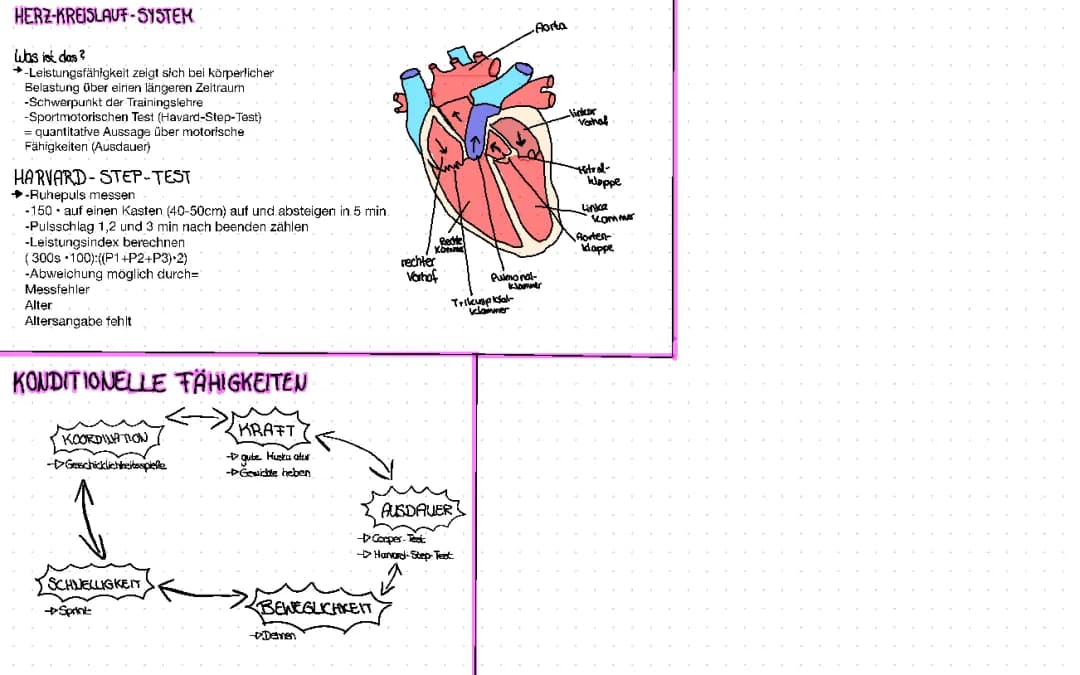 HERZ-KREISLAUF-SYSTEM
Was ist das?
→-Leistungsfähigkeit zeigt sich bei körperlicher
Belastung über einen längeren Zeitraum
-Schwerpunkt der Trainingslehre
-Sportmotorischen Test (Havard-Step-Test)
= quantitative Aussage über motorische
Fähigkeiten (Ausdauer)
HARVARD-STEP-TEST
→-Ruhepuls messen
-150 • auf einen Kasten (40-50cm) auf und absteigen in 5 min
-Pulsschlag 1,2 und 3 min nach beenden zählen
-Leistungsindex berechnen
(300s •100):((P1+P2+P3)•2)
-Abweichung möglich durch=
Messfehler
Alter
Altersangabe fehlt
Aorta
linker
Vorhof
Mitral-
klappe
Linke
Kammer
Aorten-
klappe
Rechte
Kammer
rechter
Vorhof
Pulmonal-
klammer
Trikuspidal-
klammer
KONDITIONELLE FÄHIGKEITEN
KOORDINATION
→Geschicklichkeitsspiele
KRAFT
→gute
→Gewichte heben
AUSDAUER
→Cooper-Test
→Harvard-Step-Test
SCHNELLIGKEIT
→Sprint
BEWEGLICHKEIT
→Dehnen